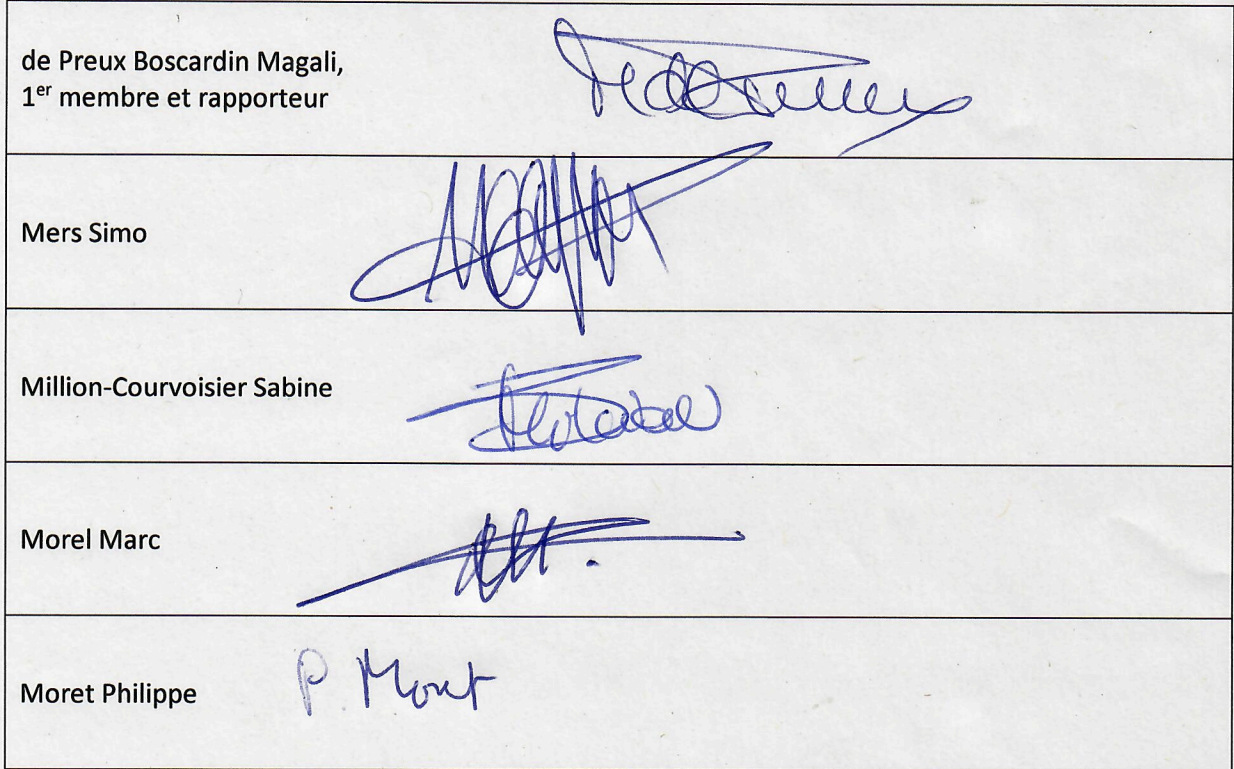 de Preux Boscardin Magali,
1er membre et rapporteur
Mers Simo
Million-Courvoisier Sabine
Morel Marc
Moret Philippe
P. Moret